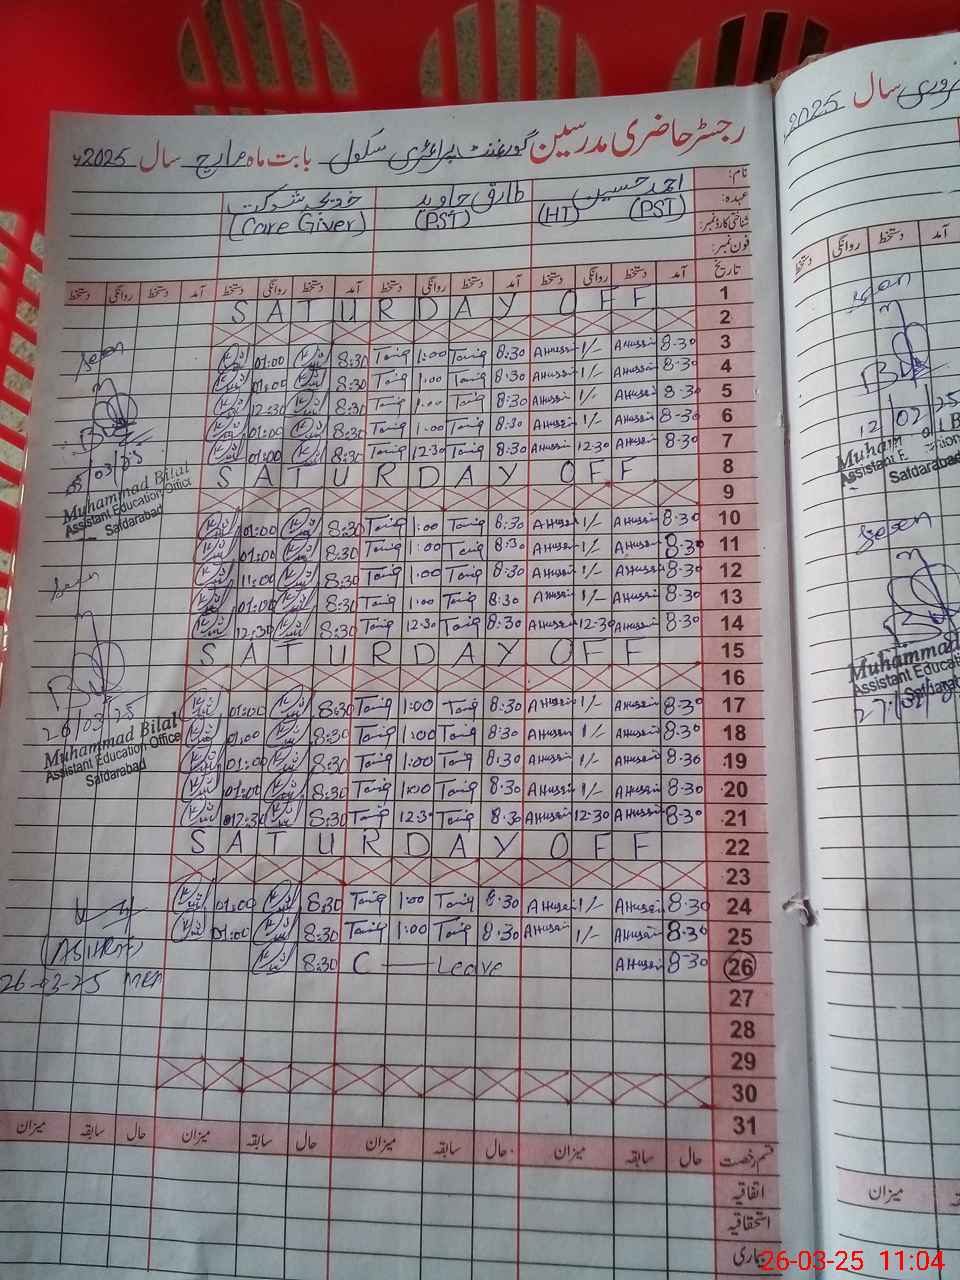 رجسٹر حاضری مدرسین گورنمنٹ پرائمری سکول بابت ماہ مارچ سال 2025ء
نام: احمد حسین طارق جاوید خدیجہ شوکت
عہدہ: (PST) (HT) (PST) (Care Giver)
شناختی کارڈ نمبر:
فون نمبر:
تاریخ آمد دستخط روانگی دستخط آمد دستخط روانگی دستخط آمد دستخط روانگی دستخط آمد دستخط روانگی دستخط
1 SATURDAY OFF
2
3 8:30 AHussain 1/- AHussain 8:30 Tariq 1:00 Tariq 8:30 01:00
4 8:30 AHussain 1/- AHussain 8:30 Tariq 1:00 Tariq 8:30 01:00
5 8:30 AHussain 1/- AHussain 8:30 Tariq 1:00 Tariq 8:30 12:30
6 8:30 AHussain 1/- AHussain 8:30 Tariq 1:00 Tariq 8:30 01:00
7 8:30 AHussain 12:30 AHussain 8:30 Tariq 12:30 Tariq 8:30 01:00
8 SATURDAY OFF
9
10 8:30 AHussain 1/- AHussain 8:30 Tariq 1:00 Tariq 8:30 01:00
11 8:30 AHussain 1/- AHussain 8:30 Tariq 1:00 Tariq 8:30 01:00
12 8:30 AHussain 1/- AHussain 8:30 Tariq 1:00 Tariq 8:30 11:00
13 8:30 AHussain 1/- AHussain 8:30 Tariq 1:00 Tariq 8:30 01:00
14 8:30 AHussain 12:30 AHussain 8:30 Tariq 12:30 Tariq 8:30 12:30
15 SATURDAY OFF
16
17 8:30 AHussain 1/- AHussain 8:30 Tariq 1:00 Tariq 8:30 01:00
18 8:30 AHussain 1/- AHussain 8:30 Tariq 1:00 Tariq 8:30 01:00
19 8:30 AHussain 1/- AHussain 8:30 Tariq 1:00 Tariq 8:30 01:00
20 8:30 AHussain 1/- AHussain 8:30 Tariq 1:00 Tariq 8:30 01:00
21 8:30 AHussain 12:30 AHussain 8:30 Tariq 12:30 Tariq 8:30 12:30
22 SATURDAY OFF
23
24 8:30 AHussain 1/- AHussain 8:30 Tariq 1:00 Tariq 8:30 01:00
25 8:30 AHussain 1/- AHussain 8:30 Tariq 1:00 Tariq 8:30 01:00
26 8:30 AHussain C — Leave 8:30
27
28
29
30
31
قسم رخصت حال سابقہ میزان حال سابقہ میزان حال سابقہ میزان حال سابقہ میزان
اتفاقیہ
استحقاقیہ
بیماری
Seen
/03/25
Muhammad Bilal
Assistant Education Officer
Safdarabad
Seen
26/03/25
Muhammad Bilal
Assistant Education Office
Safdarabad
26-03-25
فروری سال 2025
آمد دستخط روانگی دستخط
Seen
12/02/25
Muham
Assistant E
Safdarabad
Seen
Muhammad
Assistant Education
Safdarabad
27/02/
میزان
26-03-25 11:04